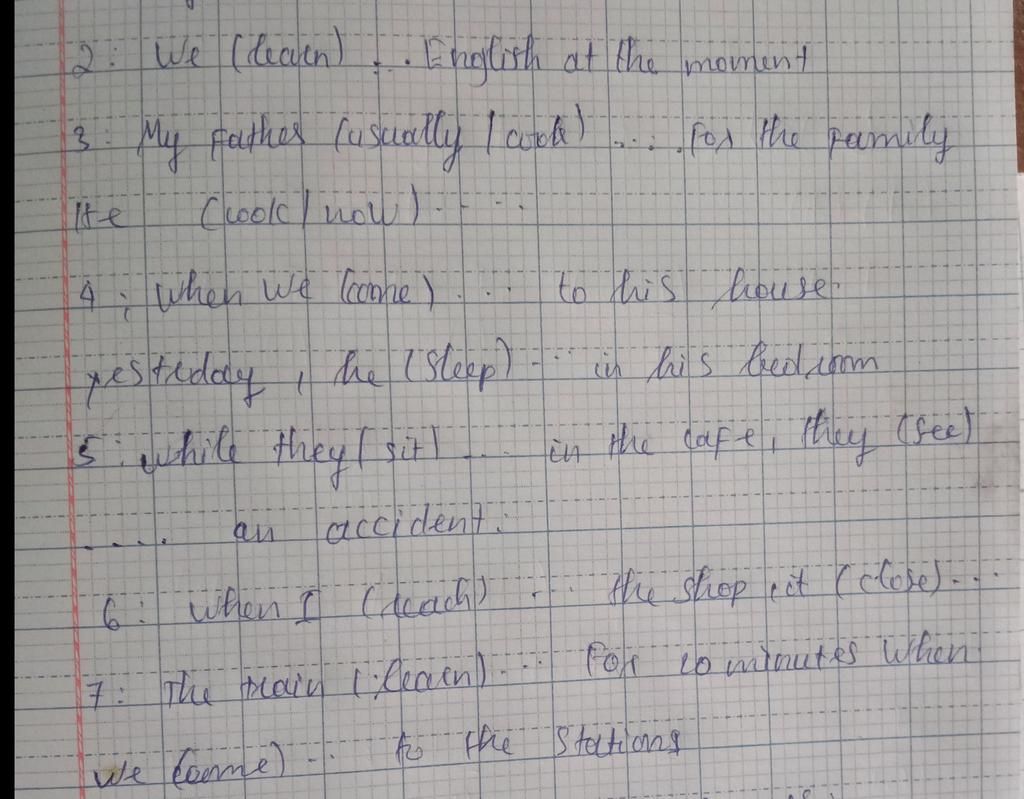 2: We (learn) ... English at the moment
3: My father (usually / cook) .... for the family
He (cook / now) ....
4: when we (come) .... to his house
yesterday, he (sleep) ... in his bedroom
5: while they (sit) .... in the cafe, they (see)
.... an accident.
6: when I (reach) ... the shop it (close)....
7: The train (learn)... for 10 minutes when
we (come) ... to the stations